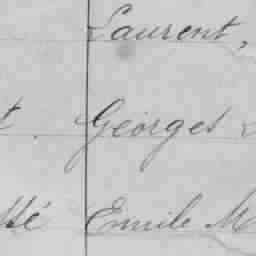 Laurent,
t. Georges
tté Emile M